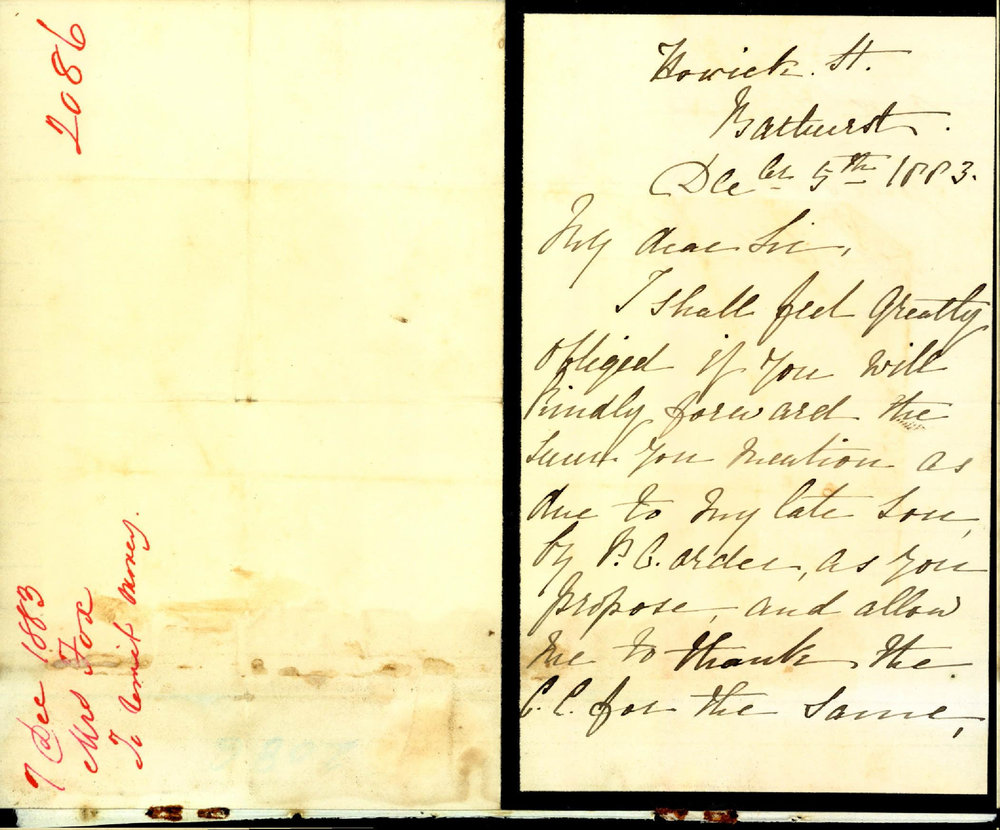 2086
7 Dec 1883
Mrs Fox
To remit money.
Howick. St.
Bathurst.
Decbr 5th 1883.
My dear Sir,
I shall feel greatly
obliged if you will
kindly forward the
sum you mention as
due to my late son,
by P.O. order, as you
propose, and allow
me to thank the
C.C. for the same,